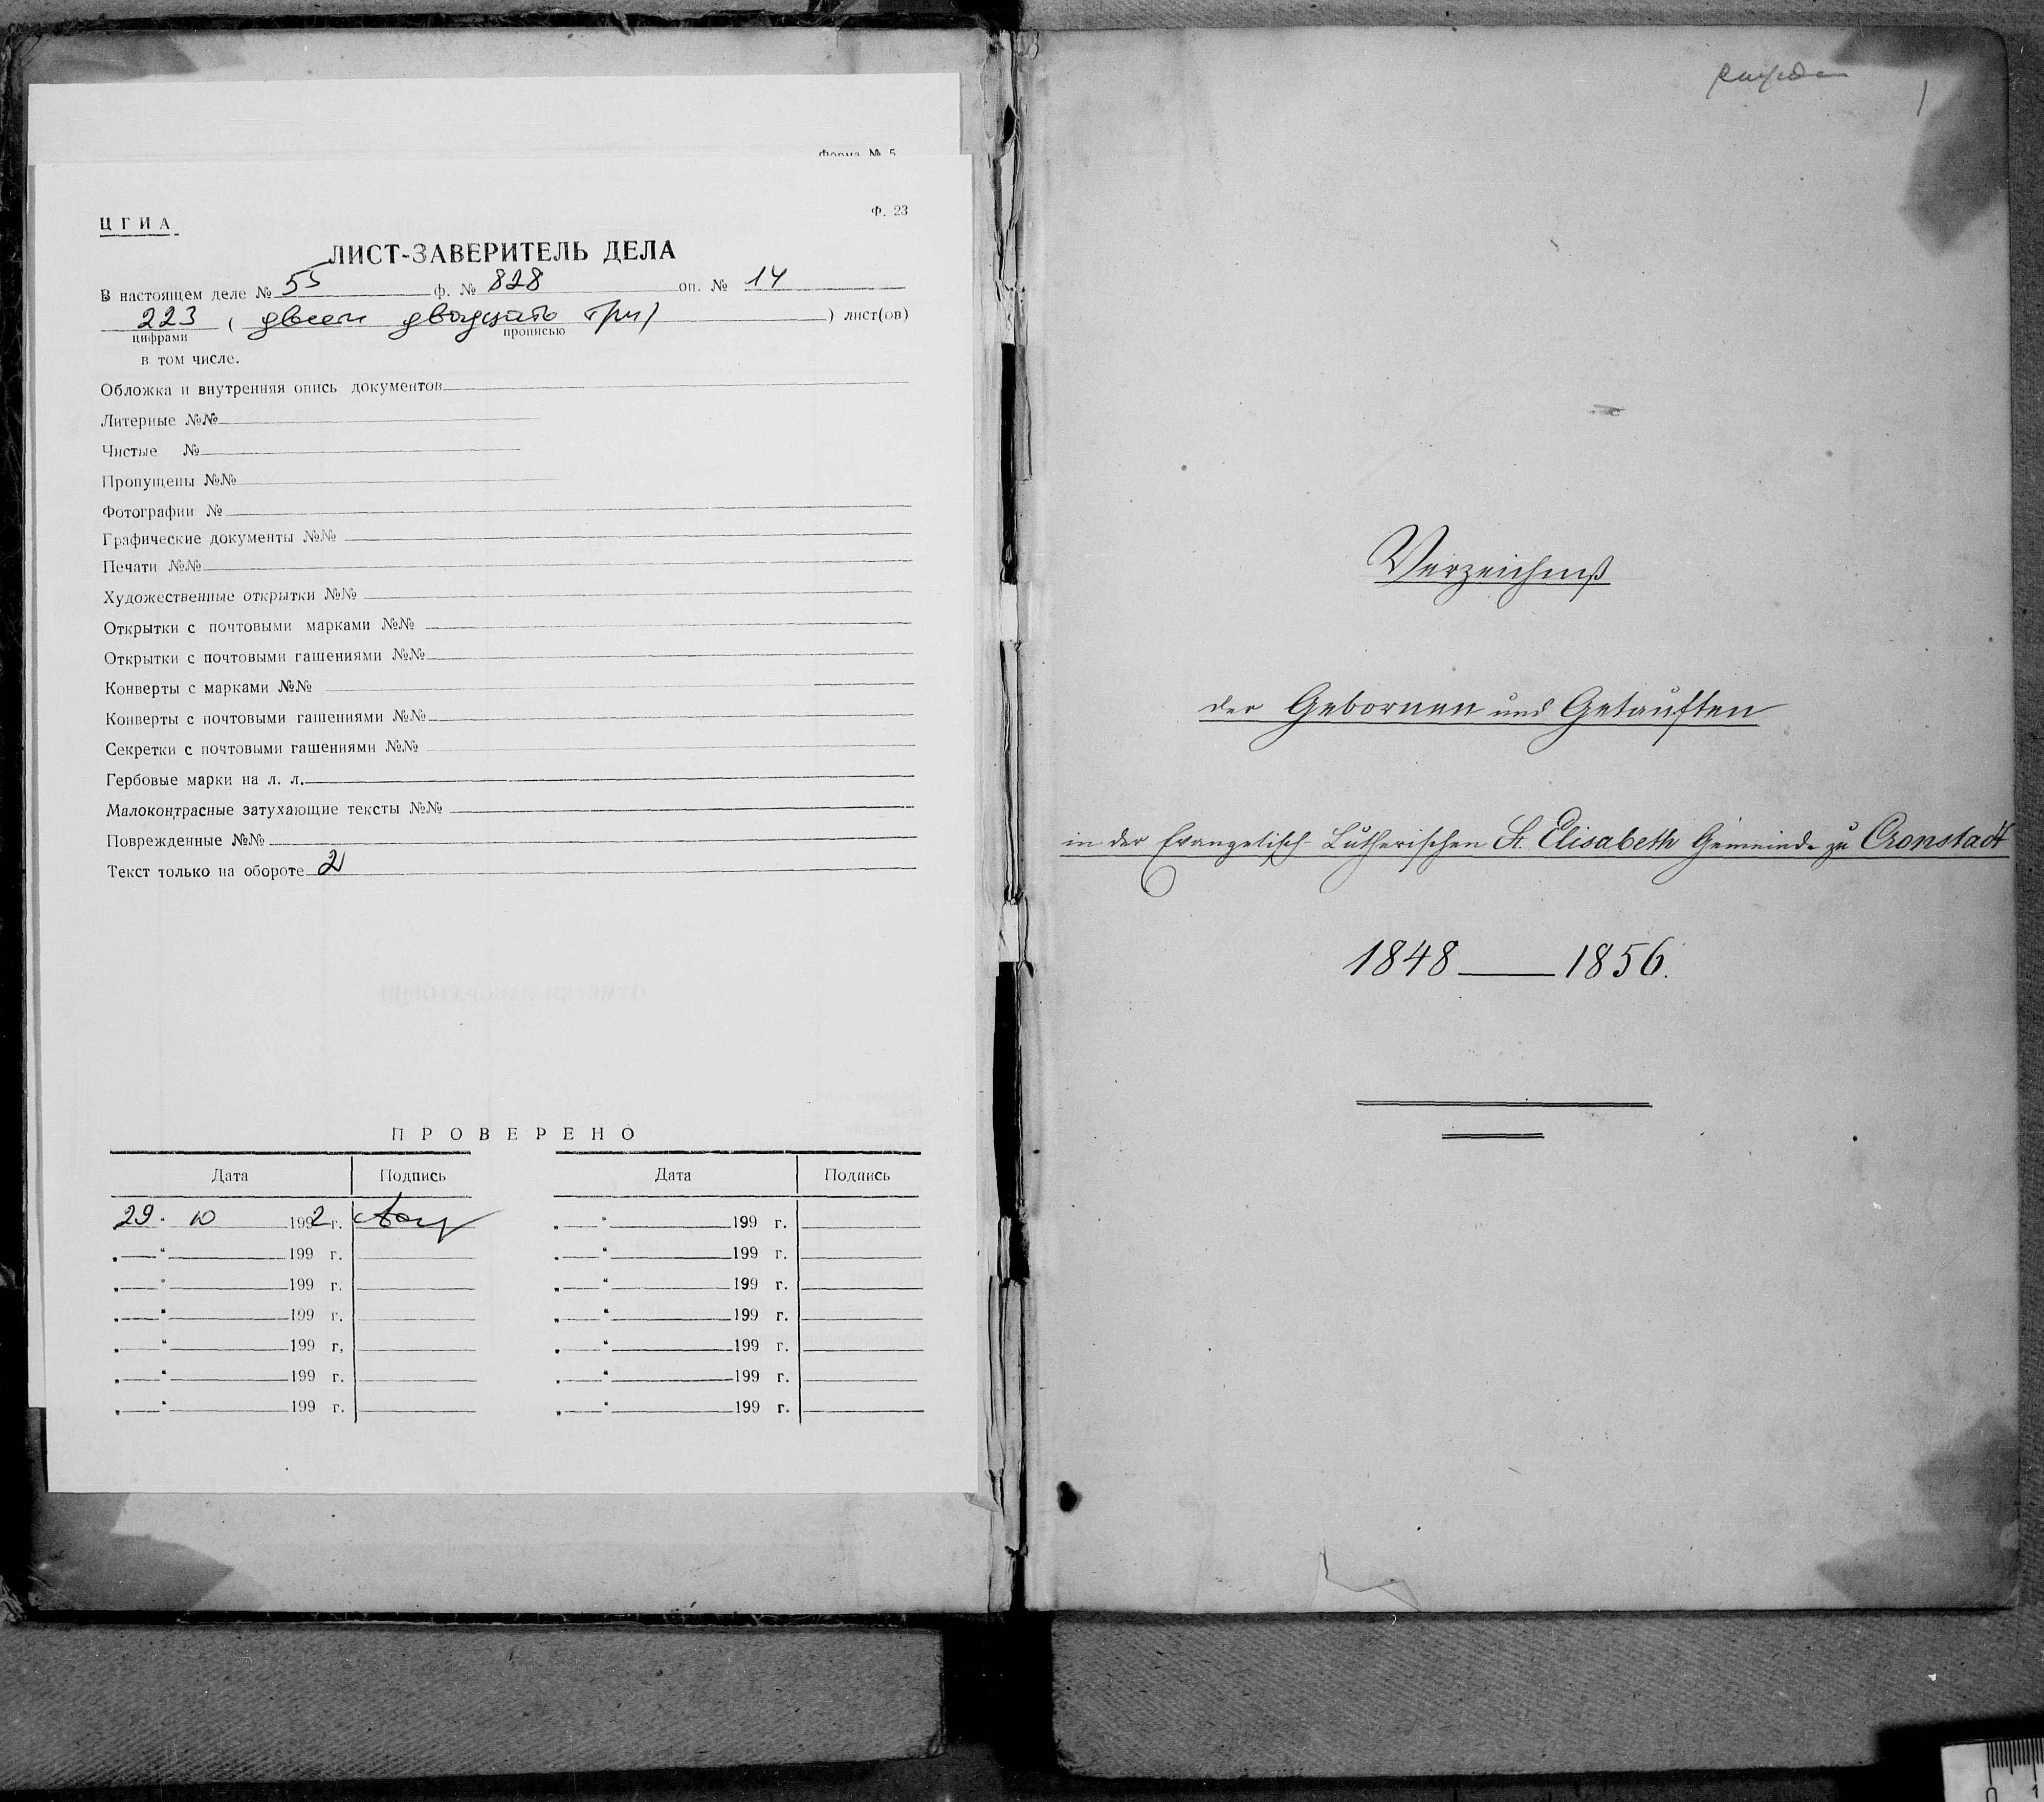 Форма № 5
ЦГИА
Ф. 23
ЛИСТ-ЗАВЕРИТЕЛЬ ДЕЛА
В настоящем деле № 55 ф. № 828 оп. № 14
223 ( двести двадцать три ) лист(ов)
цифрами прописью
в том числе.
Обложка и внутренняя опись документов
Литерные №№
Чистые №
Пропущены №№
Фотографии №
Графические документы №№
Печати №№
Художественные открытки №№
Открытки с почтовыми марками №№
Открытки с почтовыми гашениями №№
Конверты с марками №№
Конверты с почтовыми гашениями №№
Секретки с почтовыми гашениями №№
Гербовые марки на л. л.
Малоконтрасные затухающие тексты №№
Поврежденные №№
Текст только на обороте 2
ПРОВЕРЕНО
Дата Подпись Дата Подпись
29. 10 1992 г. „ “ 199 г.
„ “ 199 г. „ “ 199 г.
„ “ 199 г. „ “ 199 г.
„ “ 199 г. „ “ 199 г.
„ “ 199 г. „ “ 199 г.
„ “ 199 г. „ “ 199 г.
„ “ 199 г. „ “ 199 г.
1
Verzeichniß
der Gebornen und Getauften
in der Evangelisch-Lutherischen St. Elisabeth Gemeinde zu Cronstadt
1848 — 1856.
0 1